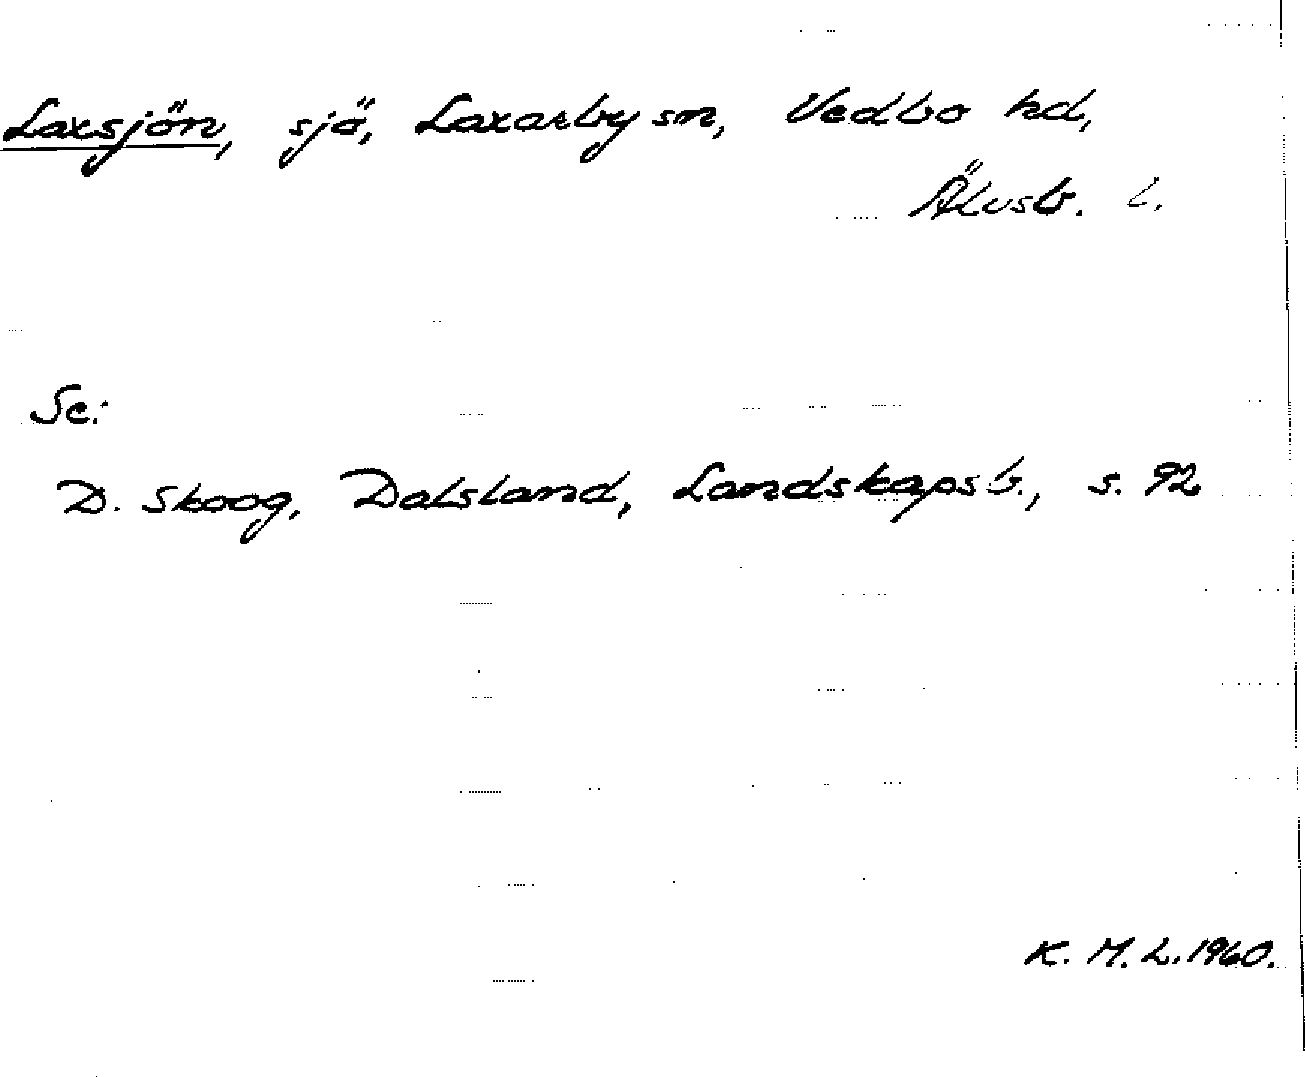 Laxsjön, sjö, Laxarby sn, Vedbo hd,
Älvsb. l.
Se:
D. Skoog, Dalsland, Landskapsb., s. 92
K. M. L. 1960.